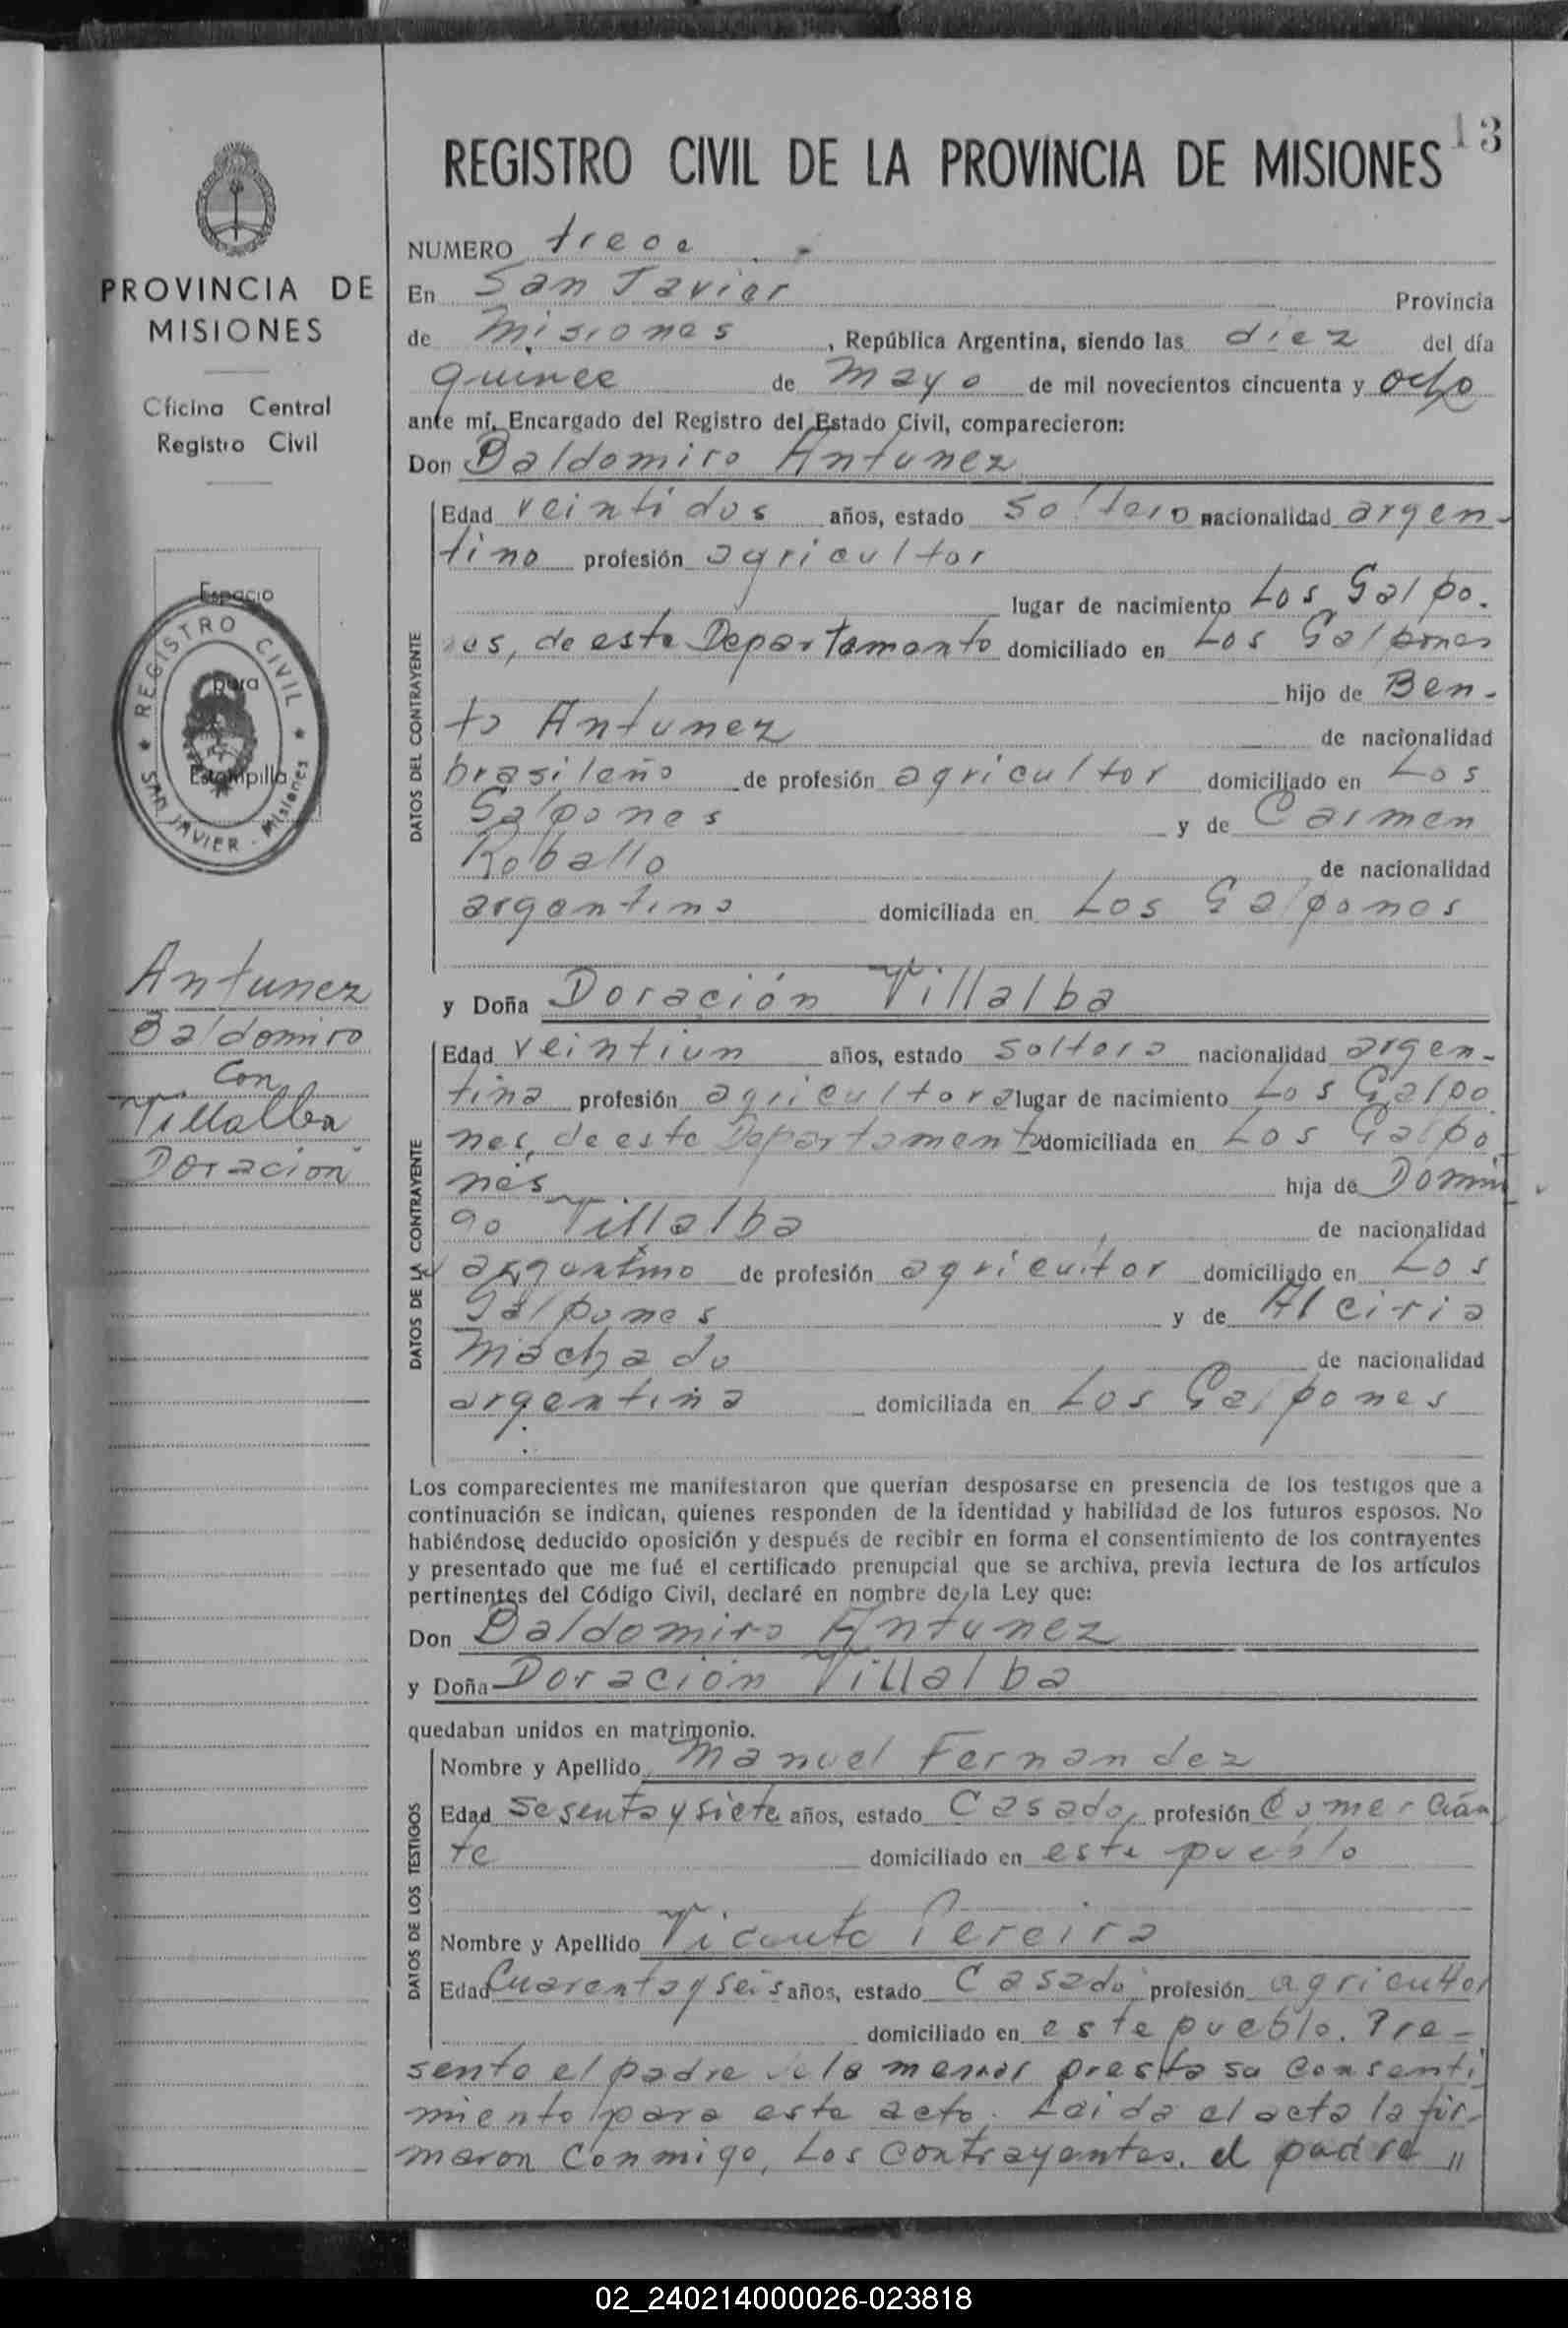 13
REGISTRO CIVIL DE LA PROVINCIA DE MISIONES
PROVINCIA DE
MISIONES
Oficina Central
Registro Civil
Espacio
para
Estampilla
★ REGISTRO CIVIL ★
SAN JAVIER - Misiones
Antunez
Baldomiro
con
Villalba
Doracion
NUMERO trece
En San Javier Provincia
de Misiones, República Argentina, siendo las diez del día
quince de Mayo de mil novecientos cincuenta y ocho
ante mí, Encargado del Registro del Estado Civil, comparecieron:
Don Baldomiro Antunez
DATOS DEL CONTRAYENTE
Edad veintidos años, estado soltero nacionalidad argen-
tino profesión agricultor
lugar de nacimiento Los Galpo.
nes, de este Departamento domiciliado en Los Galpones
hijo de Ben-
to Antunez de nacionalidad
brasileño de profesión agricultor domiciliado en Los
Galpones y de Carmen
Roballo de nacionalidad
argentina domiciliada en Los Galpones
y Doña Doración Villalba
DATOS DE LA CONTRAYENTE
Edad veintiun años, estado soltera nacionalidad argen-
tina profesión agricultora lugar de nacimiento Los Galpo
nes, de este Departamento domiciliada en Los Galpo
nes hija de Domin
go Villalba de nacionalidad
argentino de profesión agricultor domiciliado en Los
Galpones y de Alciria
Machado de nacionalidad
argentina domiciliada en Los Galpones
Los comparecientes me manifestaron que querían desposarse en presencia de los testigos que a
continuación se indican, quienes responden de la identidad y habilidad de los futuros esposos. No
habiéndose deducido oposición y después de recibir en forma el consentimiento de los contrayentes
y presentado que me fué el certificado prenupcial que se archiva, previa lectura de los artículos
pertinentes del Código Civil, declaré en nombre de la Ley que:
Don Baldomiro Antunez
y Doña Doración Villalba
quedaban unidos en matrimonio.
DATOS DE LOS TESTIGOS
Nombre y Apellido Manuel Fernandez
Edad sesenta y siete años, estado Casado, profesión Comercian
te domiciliado en este pueblo
Nombre y Apellido Vicente Pereira
Edad Cuarenta y seis años, estado Casado profesión agricultor
domiciliado en este pueblo. Pre-
sente el padre de la menor presta su consenti
miento para este acto. Leida el acta la fir-
maron conmigo, Los contrayentes, el padre "
02_240214000026-023818